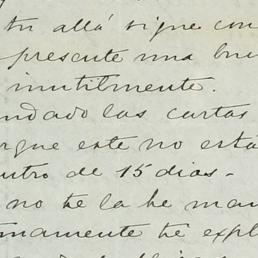 tu allá sigue con
presente una bue
inutilmente.
ndado las cartas
rque este no está
ntro de 15 dias-
no te la he man
mamente te expl